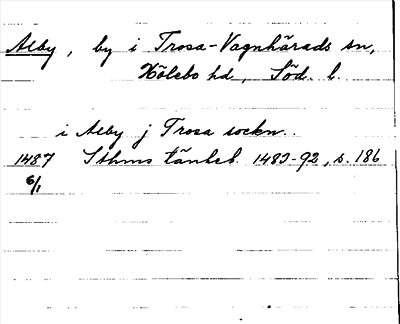 Alby, by i Trosa-Vagnhärads sn,
Hölebo hd, Söd. l.
i Alby j Trosa sockn.
1487 Sthms tänkeb. 1483-92, s. 186
6/1